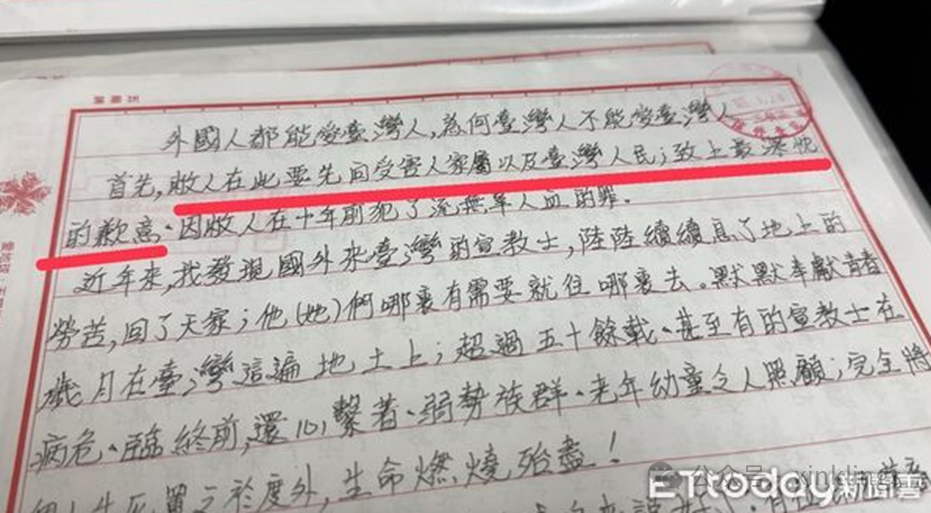 外國人都能愛臺灣人,為何臺灣人不能愛臺灣人
首先,敝人在此要先向受害人家屬以及臺灣人民;致上最深忱
的歉意。因敝人在十年前犯了流無辜人血的罪.
近年來,我發現國外來臺灣的宣教士,陸陸續續息了地上的
勞苦,回了天家;他(她)們哪裏有需要就往哪裏去。默默奉獻青春
歲月在臺灣這遍地土上;超過五十餘載、甚至有的宣教士在
病危、臨終前,還心繫著、弱勢族群、老年幼童之人照顧;完全將
個人生死置之於度外,生命燃燒殆盡!
公众号
ETtoday新聞雲